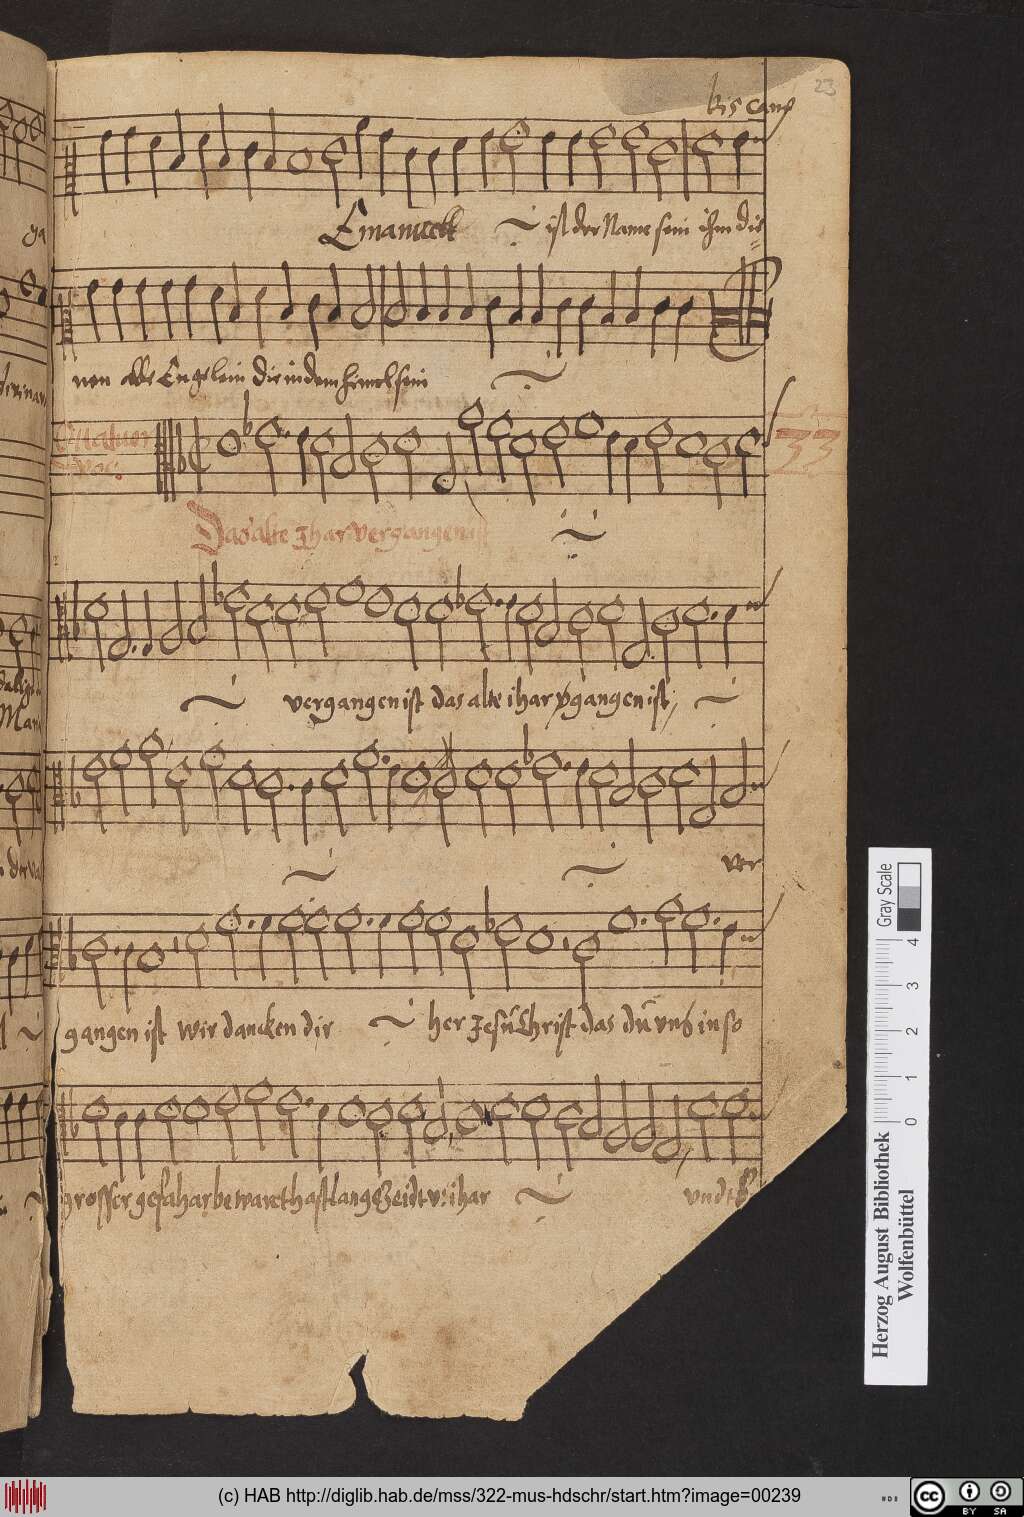 23
bis canp
Emanuell ist der Name sein ihm die=
nen alle Engelein die in dem himel sein
Quatuor
voc:
33
Das alte Jhar vergangen ist
vergangen ist das alte ihar vgangen ist,
ver
gangen ist wir dancken dir her Jesu Christ das du uns in so
grosser gefahar bewareth hast lang Zeidt v: ihar undt
Gray Scale
0 1 2 3 4
Herzog August Bibliothek
Wolfenbüttel
(c) HAB http://diglib.hab.de/mss/322-mus-hdschr/start.htm?image=00239
cc BY SA